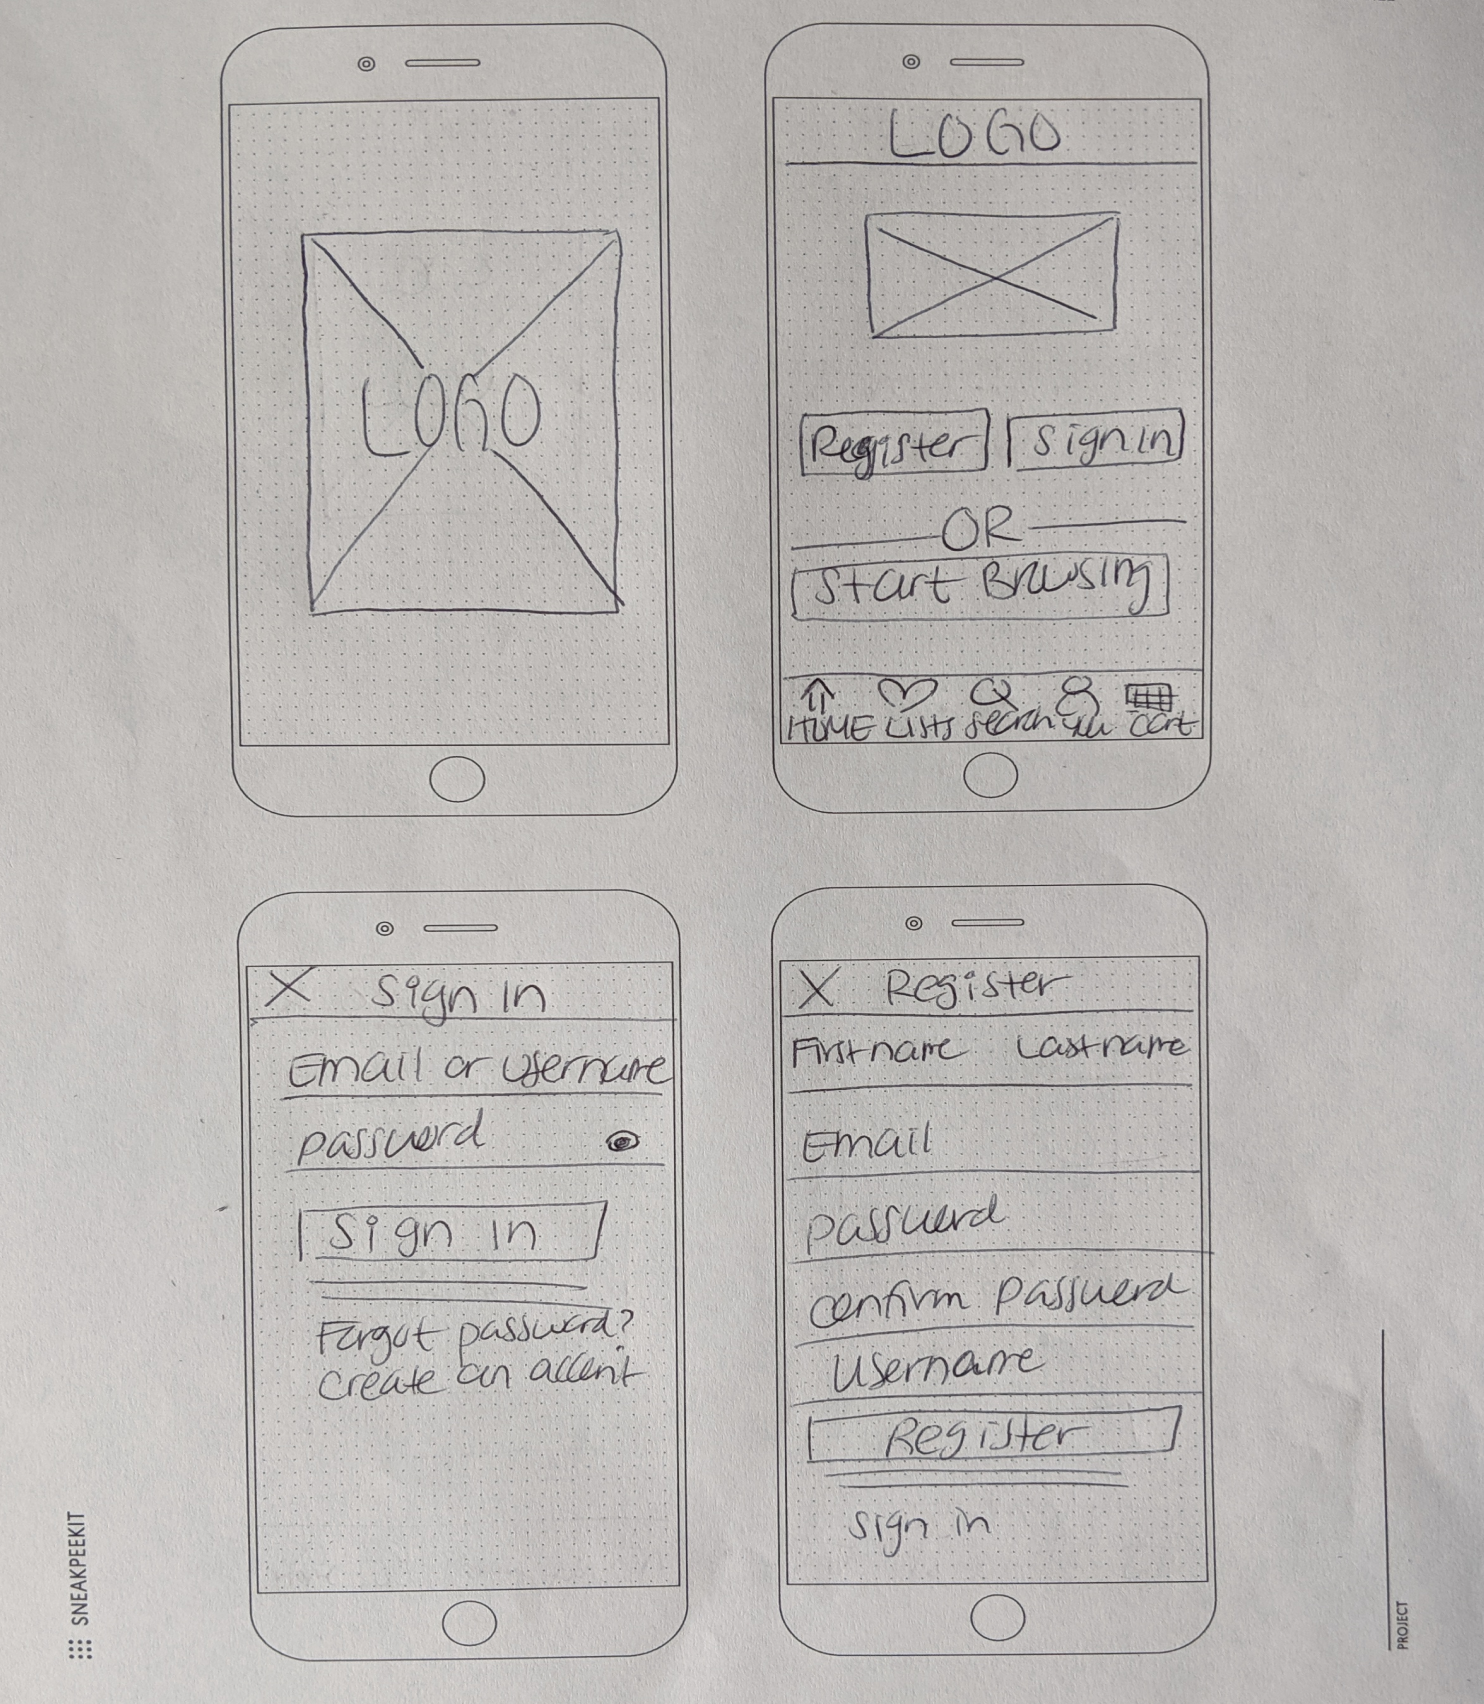 LOGO
LOGO
Register
Sign in
OR
Start Browsing
HOME LISTS search you cart
X Sign in
Email or username
password
Sign in
Forgot password?
create an account
X Register
First name Last name
Email
password
confirm password
Username
Register
sign in
SNEAKPEEKIT
PROJECT